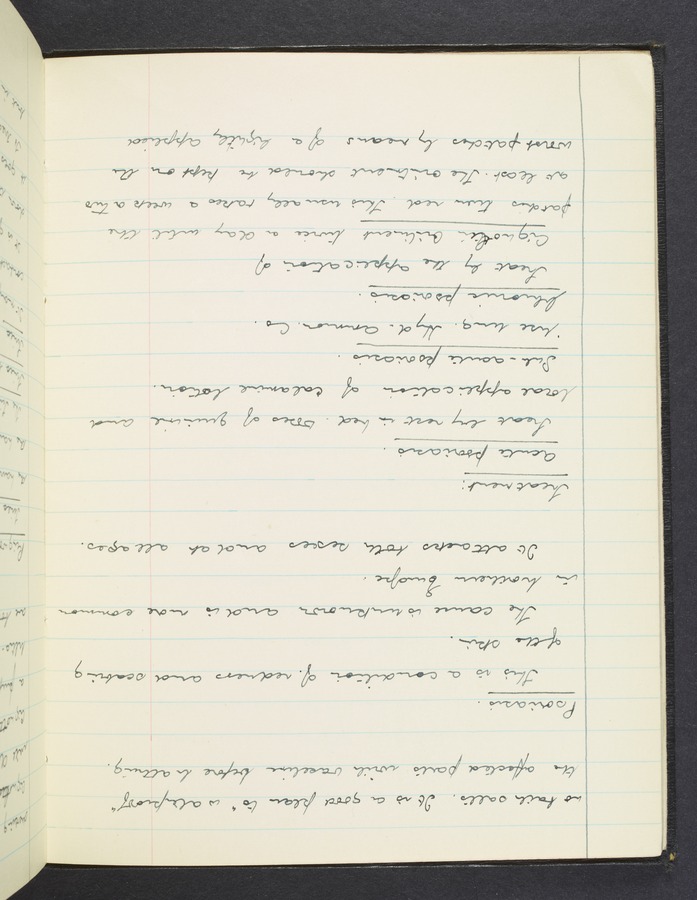 no bath salts. It is a good plan to "waterproof"
the affected parts with vaseline before bathing.
Psoriasis.
This is a condition of redness and scaling
of the skin.
The cause is unknown and is more common
in Northern Europe.
It attacks both sexes and at all ages.
Treatment:
Acute psoriasis.
Treat by rest in bed. Doses of quinine and
local application of calamine lotion.
Sub-acute psoriasis.
Use ung. Hyd. ammon. Co.
Chronic psoriasis.
Treat by the application of
Cignolin Ointment twice a day until the
patches turn red. This usually takes a week or two
at least. The ointment should be kept on the
worst patches by means of a lightly applied